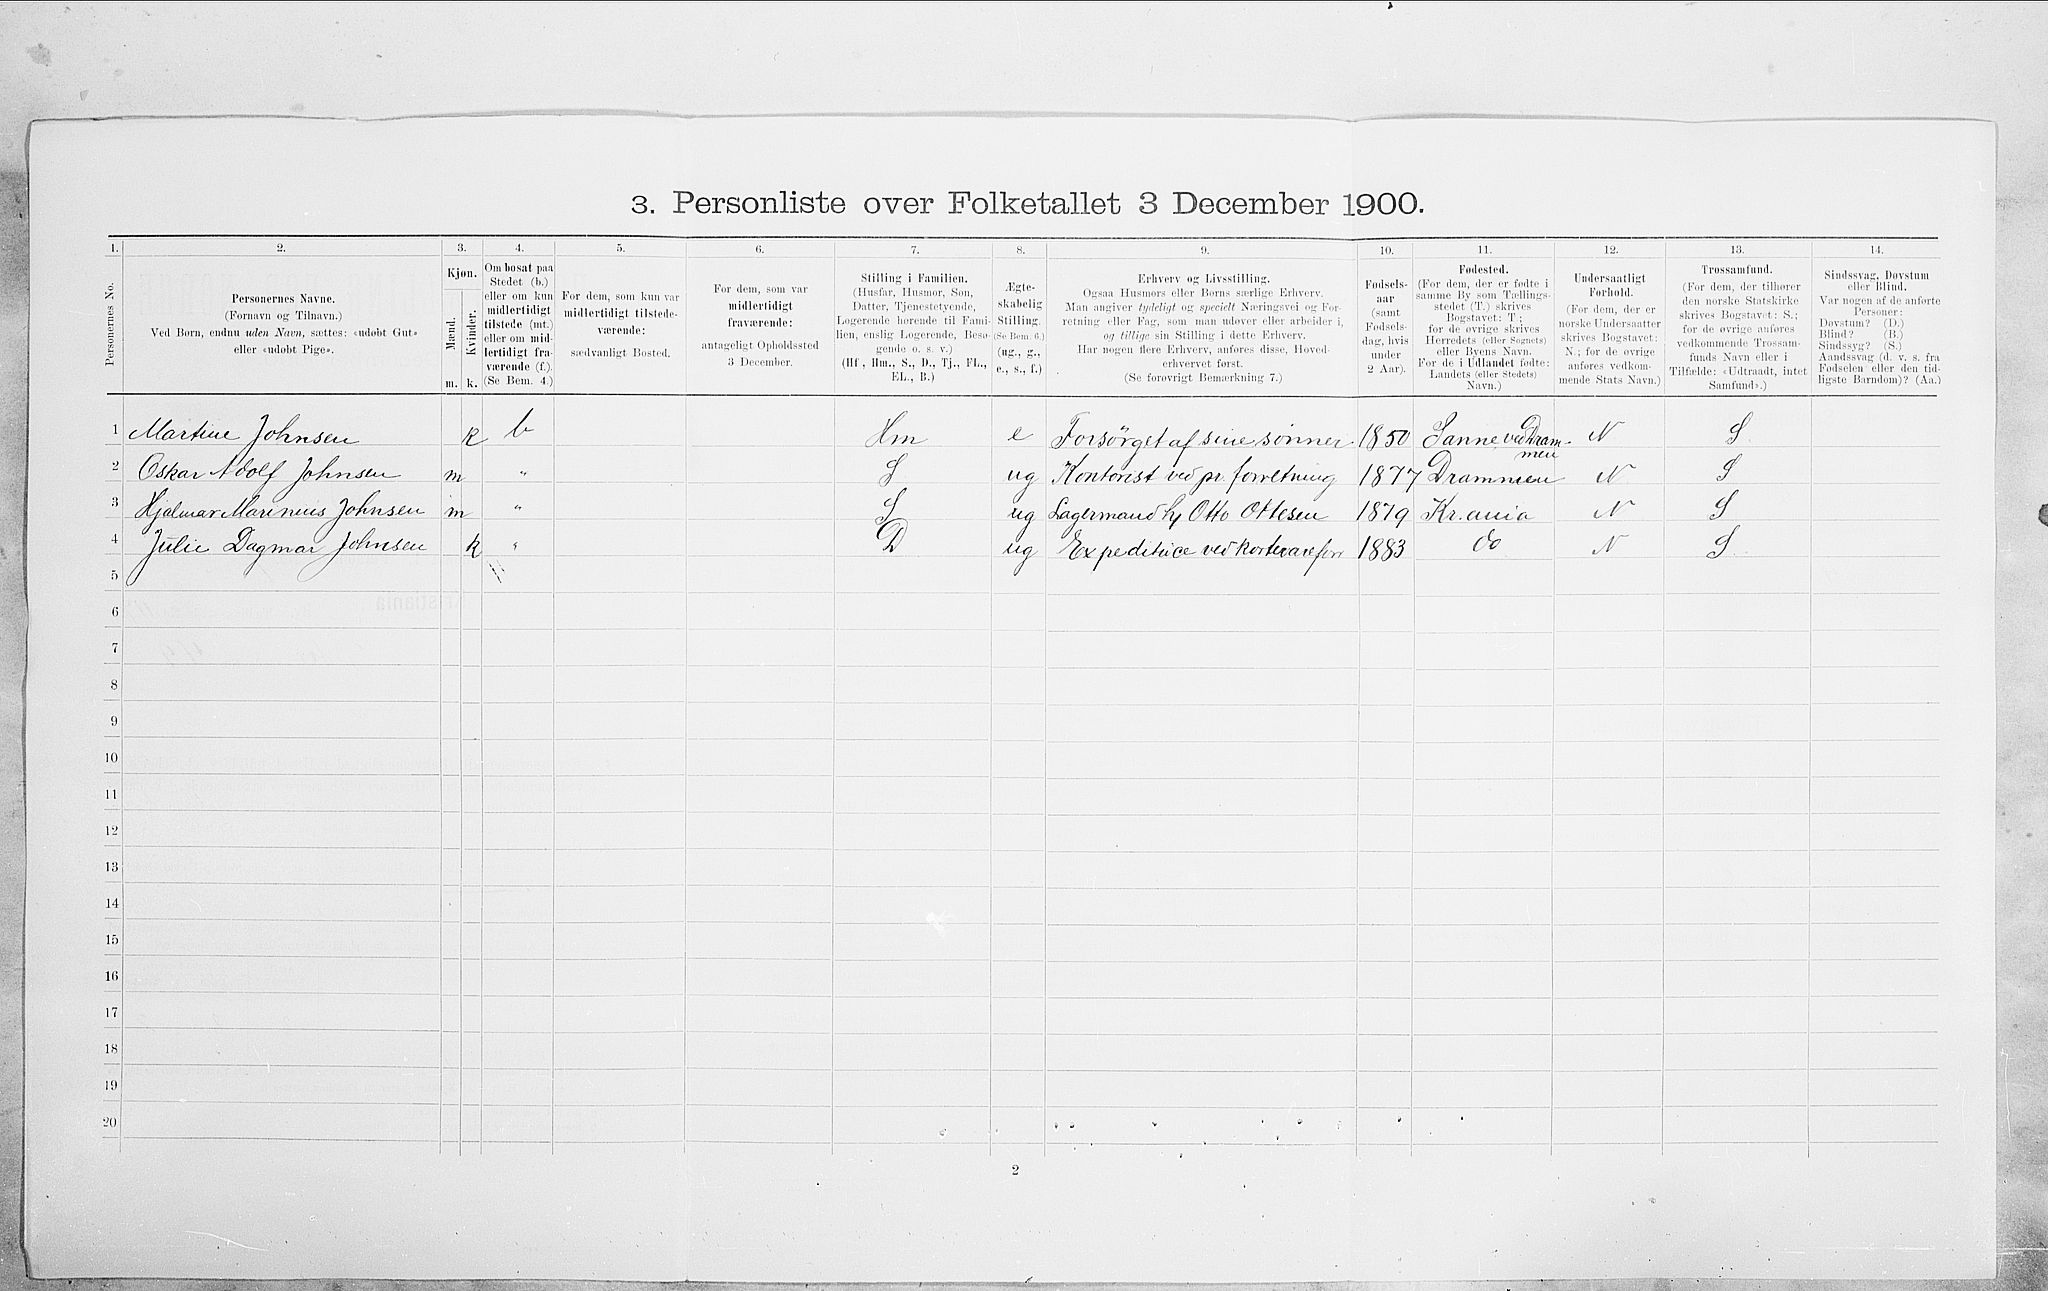 3. Personliste over Folketallet 3 December 1900.
1. 2. 3. 4. 5. 6. 7. 8. 9. 10. 11. 12. 13. 14.
Personernes No.
Personernes Navne.
(Fornavn og Tilnavn.)
Ved Børn, endnu uden Navn, sættes: «udøbt Gut»
eller «udøbt Pige».
Kjøn.
Mænd.
Kvinder.
m. k.
Om bosat paa
Stedet (b.)
eller om kun
midlertidigt
tilstede (mt.)
eller om mid-
lertidigt fra-
værende (f.).
(Se Bem. 4.)
For dem, som kun var
midlertidigt tilstede-
værende:
sædvanligt Bosted.
For dem, som var
midlertidigt
fraværende:
antageligt Opholdssted
3 December.
Stilling i Familien.
(Husfar, Husmor, Søn,
Datter, Tjenestetyende,
Logerende hørende til Fami-
lien, enslig Logerende, Besø-
gende o. s. v.)
(Hf., Hm., S., D., Tj., FL.,
EL., B.)
Ægte-
skabelig
Stilling.
(Se Bem. 6.)
(ug., g.,
e., s., f.)
Erhverv og Livsstilling.
Ogsaa Husmors eller Børns særlige Erhverv.
Man angiver tydeligt og specielt Næringsvei og For-
retning eller Fag, som man udøver eller arbeider i,
og tillige sin Stilling i dette Erhverv.
Har nogen flere Erhverv, anføres disse, Hoved-
erhvervet først.
(Se forøvrigt Bemærkning 7.)
Fødsels-
aar
(samt
Fødsels-
dag, hvis
under
2 Aar).
Fødested.
(For dem, der er fødte i
samme By som Tællings-
stedet (T.) skrives
Bogstavet: T;
for de øvrige skrives
Herredets (eller Sognets)
eller Byens Navn.
For de i Udlandet fødte:
Landets (eller Stedets)
Navn.)
Undersaatligt
Forhold.
(For dem, der er
norske Undersaatter
skrives Bogstavet:
N.; for de øvrige
anføres vedkom-
mende Stats Navn.)
Trossamfund.
(For dem, der tilhører
den norske Statskirke
skrives Bogstavet: S.;
for de øvrige anføres
vedkommende Trossam-
funds Navn eller i
Tilfælde: «Udtraadt, intet
Samfund».)
Sindssvag, Døvstum
eller Blind.
Var nogen af de anførte
Personer:
Døvstum? (D.)
Blind? (B.)
Sindssyg? (S.)
Aandssvag (d. v. s. fra
Fødselen eller den tid-
ligste Barndom)? (Aa.)
1 Martine Johnsen k b Hm e Forsørget af sine sønner 1850 Sanne ved Dram-
men N S
2 Oskar Adolf Johnsen m " S ug Kontorist ved pr. forretning 1877 Drammen N S
3 Hjalmar Marinius Johnsen m " S ug Lagermand hj Otto Ottesen 1879 Kr.ania N S
4 Julie Dagmar Johnsen k " D ug Expeditrice ved kortevareforr 1883 do N S
5
6
7
8
9
10
11
12
13
14
15
16
17
18
19
20
2